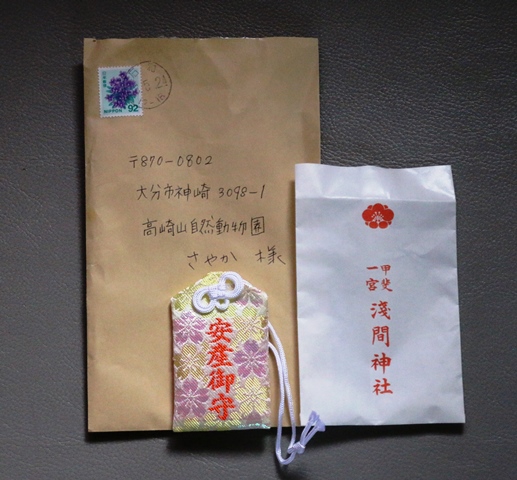 〒870-0802
大分市神崎 3098-1
高崎山自然動物園
さやか 様
92
NIPPON
安産御守
甲斐
一宮
淺間神社